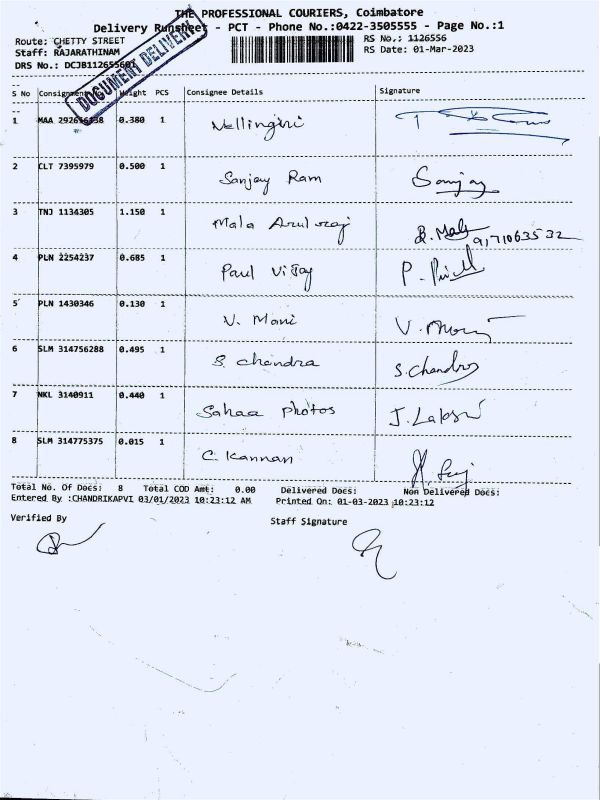 THE PROFESSIONAL COURIERS, Coimbatore
Delivery Runsheet - PCT - Phone No.:0422-3505555 - Page No.:1
Route: CHETTY STREET RS No.: 1126556
Staff: RAJARATHINAM RS Date: 01-Mar-2023
DRS No.: DCJB112655601
DOCUMENT DELIVERY
S No Weight PCS Consignee Details Signature
1 0.380 1 Nellingiri
2 CLT 7395979 0.500 1 Sanjay Ram Sanjay
3 TNJ 1134305 1.150 1 Mala Arul raj
4 PLN 2254237 0.685 1 Paul Vijay
5 PLN 1430346 0.130 1 V. Mani V. Mani
6 SLM 314756288 0.495 1 S. chandra S. Chandra
7 NKL 3140911 0.440 1 Sahaa photos
8 SLM 314775375 0.015 1 C. Kannan
Total No. Of Docs: 8 Total COD Amt: 0.00 Delivered Docs: Non Delivered Docs:
Entered By :CHANDRIKAPVI 03/01/2023 10:23:12 AM Printed On: 01-03-2023 10:23:12
Verified By Staff Signature